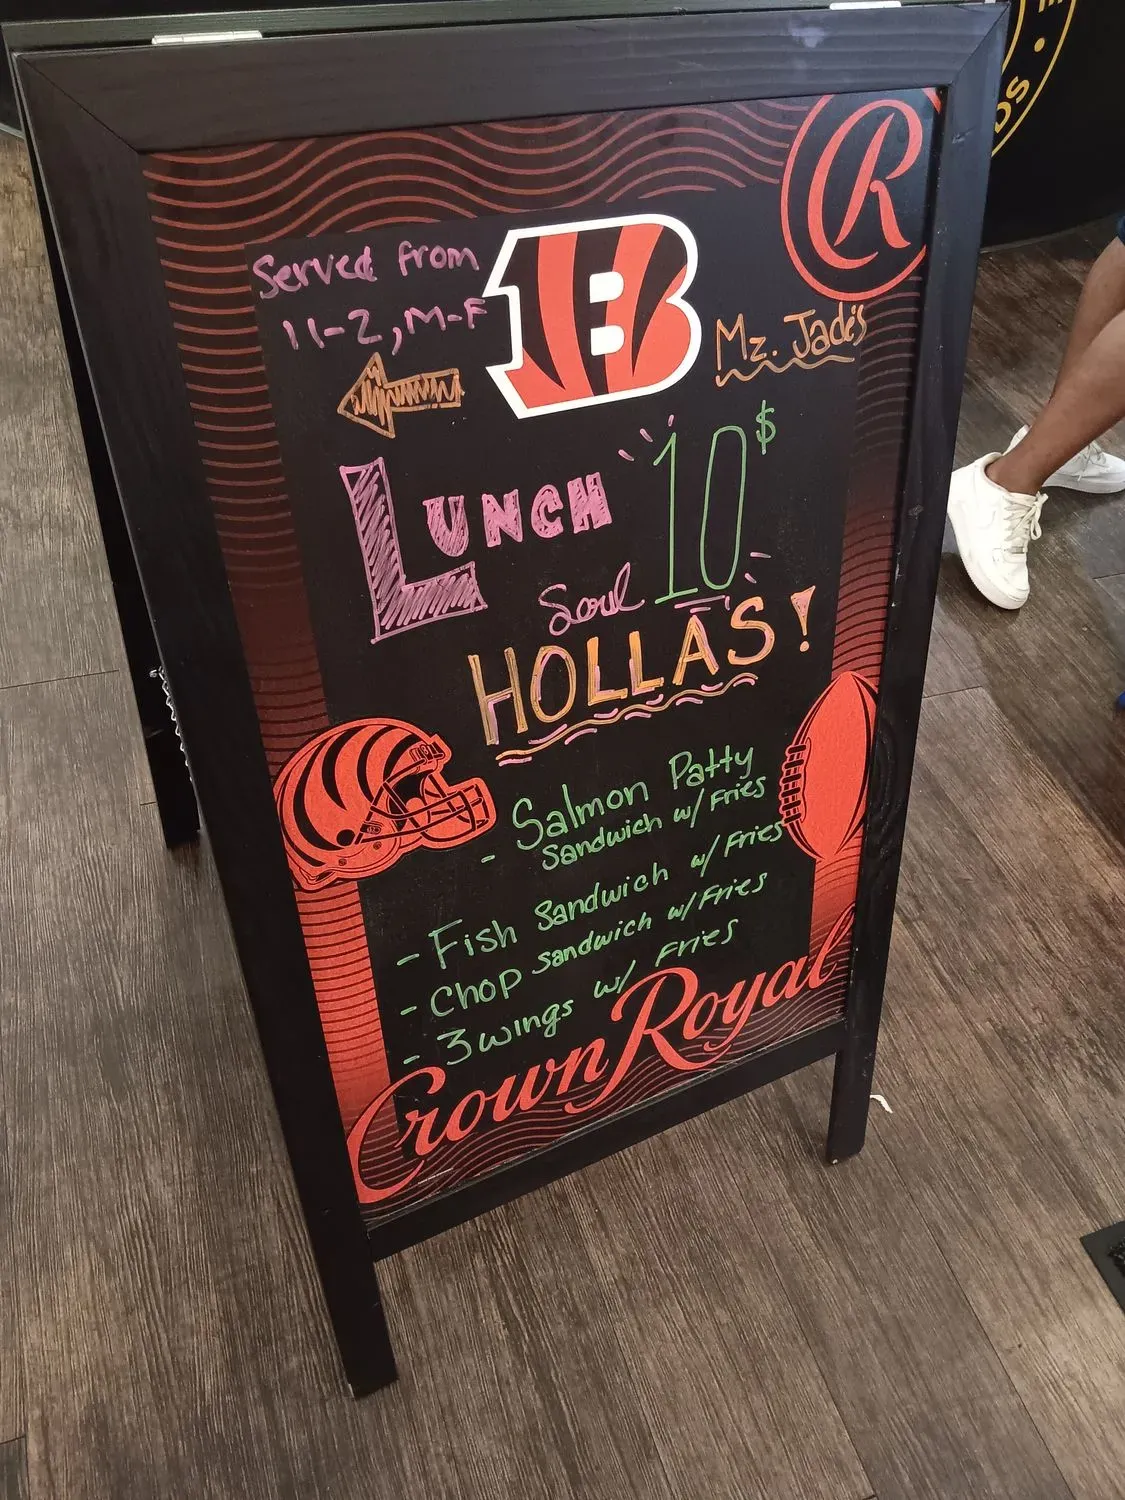 Served from
11-2, M-F
B
R
Mz. Jade's
LUNCH 10$
Soul
HOLLAS!
- Salmon Patty
Sandwich w/ Fries
- Fish Sandwich w/ Fries
- Chop Sandwich w/ Fries
- 3 wings w/ Fries
Crown Royal
DS